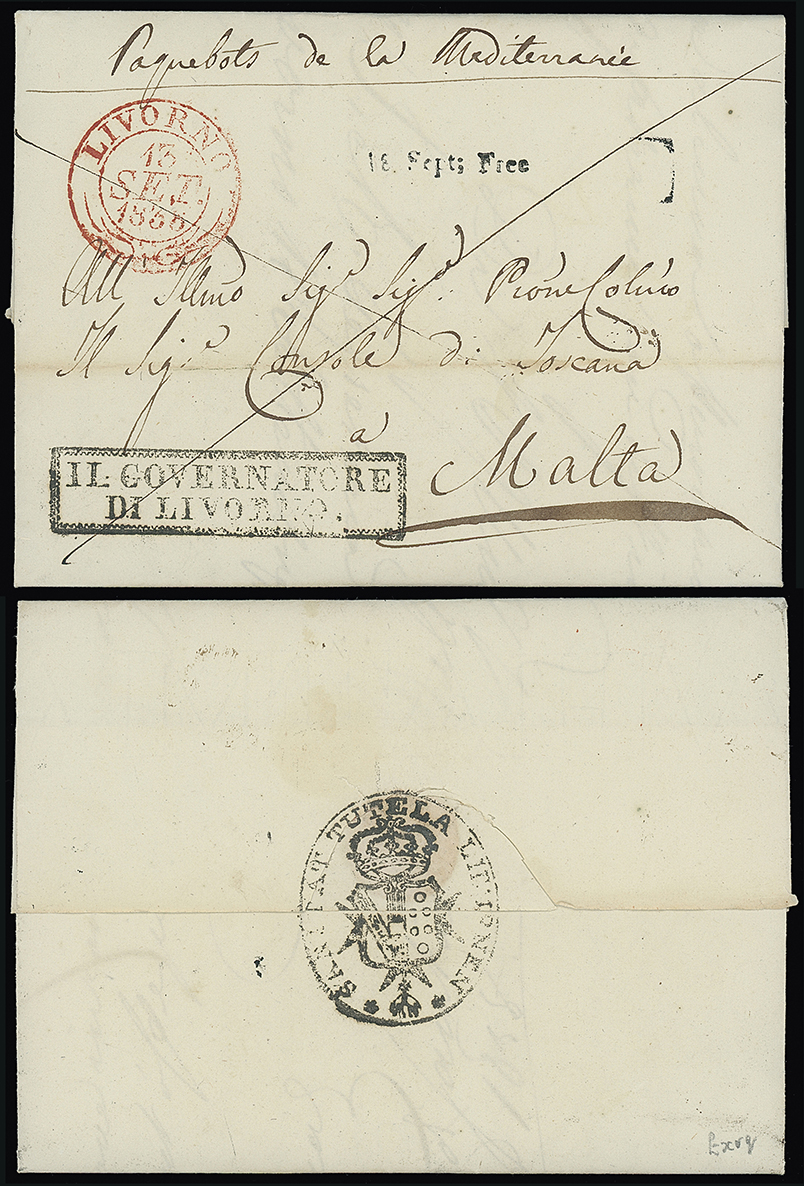 Paquebots de la Mediterranée
LIVORNO
13
SET.
1838
18 Sept; Free
All Illmo Sigr. Sigr.
Il Sigr. Console di Toscana
a
Malta
IL GOVERNATORE
DI LIVORNO.
SANITAT TUTELA